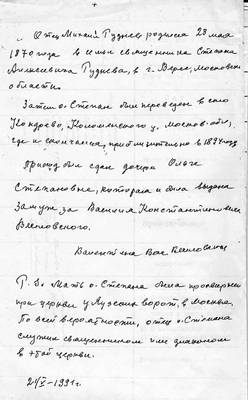 Отец Михаил Руднев родился 28 мая
1870 года в семье священника Степана
Алексеевича Руднева, в г. Верее, Московской
области.
Затем о. Степан был переведен в село
Кондрево, Коломенского у. Москов. обл.,
где и скончался, приблизительно в 1894 году.
Приход был сдан дочери Ольге
Степановне, которая и была выдана
замуж за Василия Константиновича
Валентина Вас
P. S. Мать о. Степана была просвирней
при церкви у ворот, в Москве.
По всей вероятности, отец о. Степана
служил священником или диаконом
в этой церкви.
1991 г.